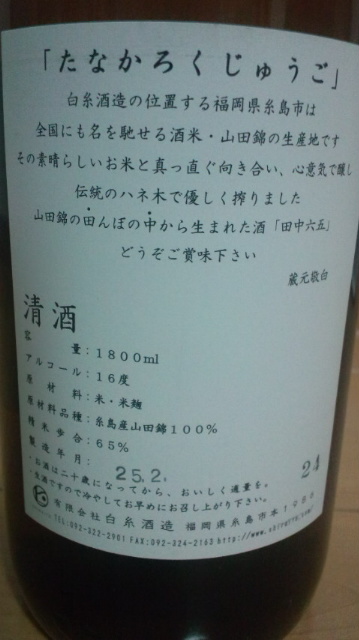 「たなかろくじゅうご」
白糸酒造の位置する福岡県糸島市は
全国にも名を馳せる酒米・山田錦の生産地です
その素晴らしいお米と真っ直ぐ向き合い、心意気で醸し
伝統のハネ木で優しく搾りました
山田錦の田んぼの中から生まれた酒「田中六五」
どうぞご賞味下さい
蔵元敬白
清酒
容量：1800ml
アルコール：16度
原材料：米・米麹
原材料品種：糸島産山田錦100%
精米歩合：65%
製造年月：
25.2
24
・お酒は二十歳になってから、おいしく適量を。
・生酒ですので冷やしてお早めにお召し上がり下さい。
有限会社白糸酒造 福岡県糸島市本1986
TEL:092-322-2901 FAX:092-324-2163